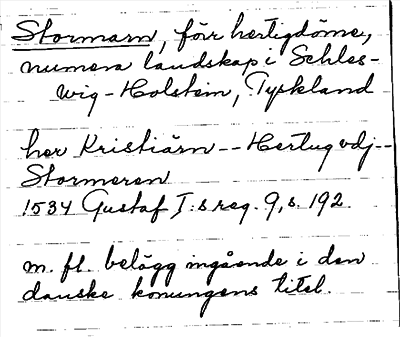 Stormarn, förr hertigdöme,
numera landskap i Schles-
wig-Holstein, Tyskland
her Kristiärn -- Hertug vdj --
Stormeren
1534 Gustaf I:s reg. 9, s. 192.
m. fl. belägg ingående i den
danske konungens titel.